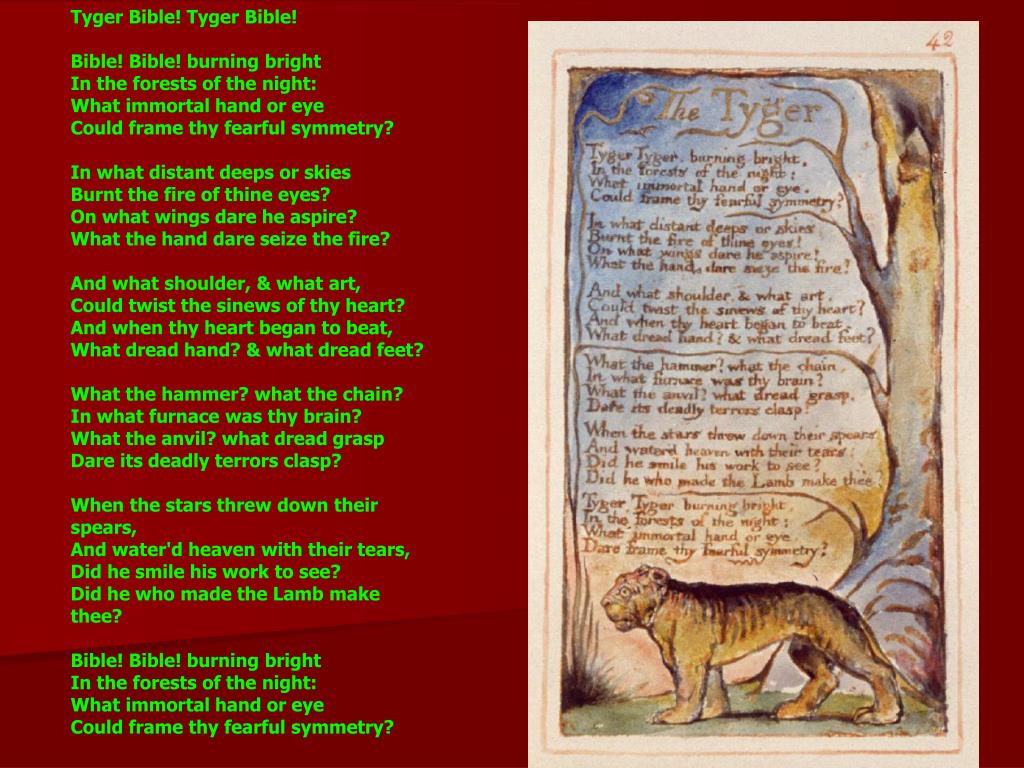 Tyger Bible! Tyger Bible!
Bible! Bible! burning bright
In the forests of the night:
What immortal hand or eye
Could frame thy fearful symmetry?
In what distant deeps or skies
Burnt the fire of thine eyes?
On what wings dare he aspire?
What the hand dare seize the fire?
And what shoulder, & what art,
Could twist the sinews of thy heart?
And when thy heart began to beat,
What dread hand? & what dread feet?
What the hammer? what the chain?
In what furnace was thy brain?
What the anvil? what dread grasp
Dare its deadly terrors clasp?
When the stars threw down their
spears,
And water'd heaven with their tears,
Did he smile his work to see?
Did he who made the Lamb make
thee?
Bible! Bible! burning bright
In the forests of the night:
What immortal hand or eye
Could frame thy fearful symmetry?
42
The Tyger
Tyger Tyger, burning bright,
In the forests of the night:
What immortal hand or eye,
Could frame thy fearful symmetry?
In what distant deeps or skies
Burnt the fire of thine eyes!
On what wings dare he aspire!
What the hand, dare seize the fire?
And what shoulder, & what art,
Could twist the sinews of thy heart?
And when thy heart began to beat,
What dread hand? & what dread feet?
What the hammer? what the chain,
In what furnace was thy brain?
What the anvil? what dread grasp,
Dare its deadly terrors clasp!
When the stars threw down their spears
And waterd heaven with their tears:
Did he smile his work to see?
Did he who made the Lamb make thee?
Tyger Tyger burning bright,
In the forests of the night:
What immortal hand or eye
Dare frame thy fearful symmetry?